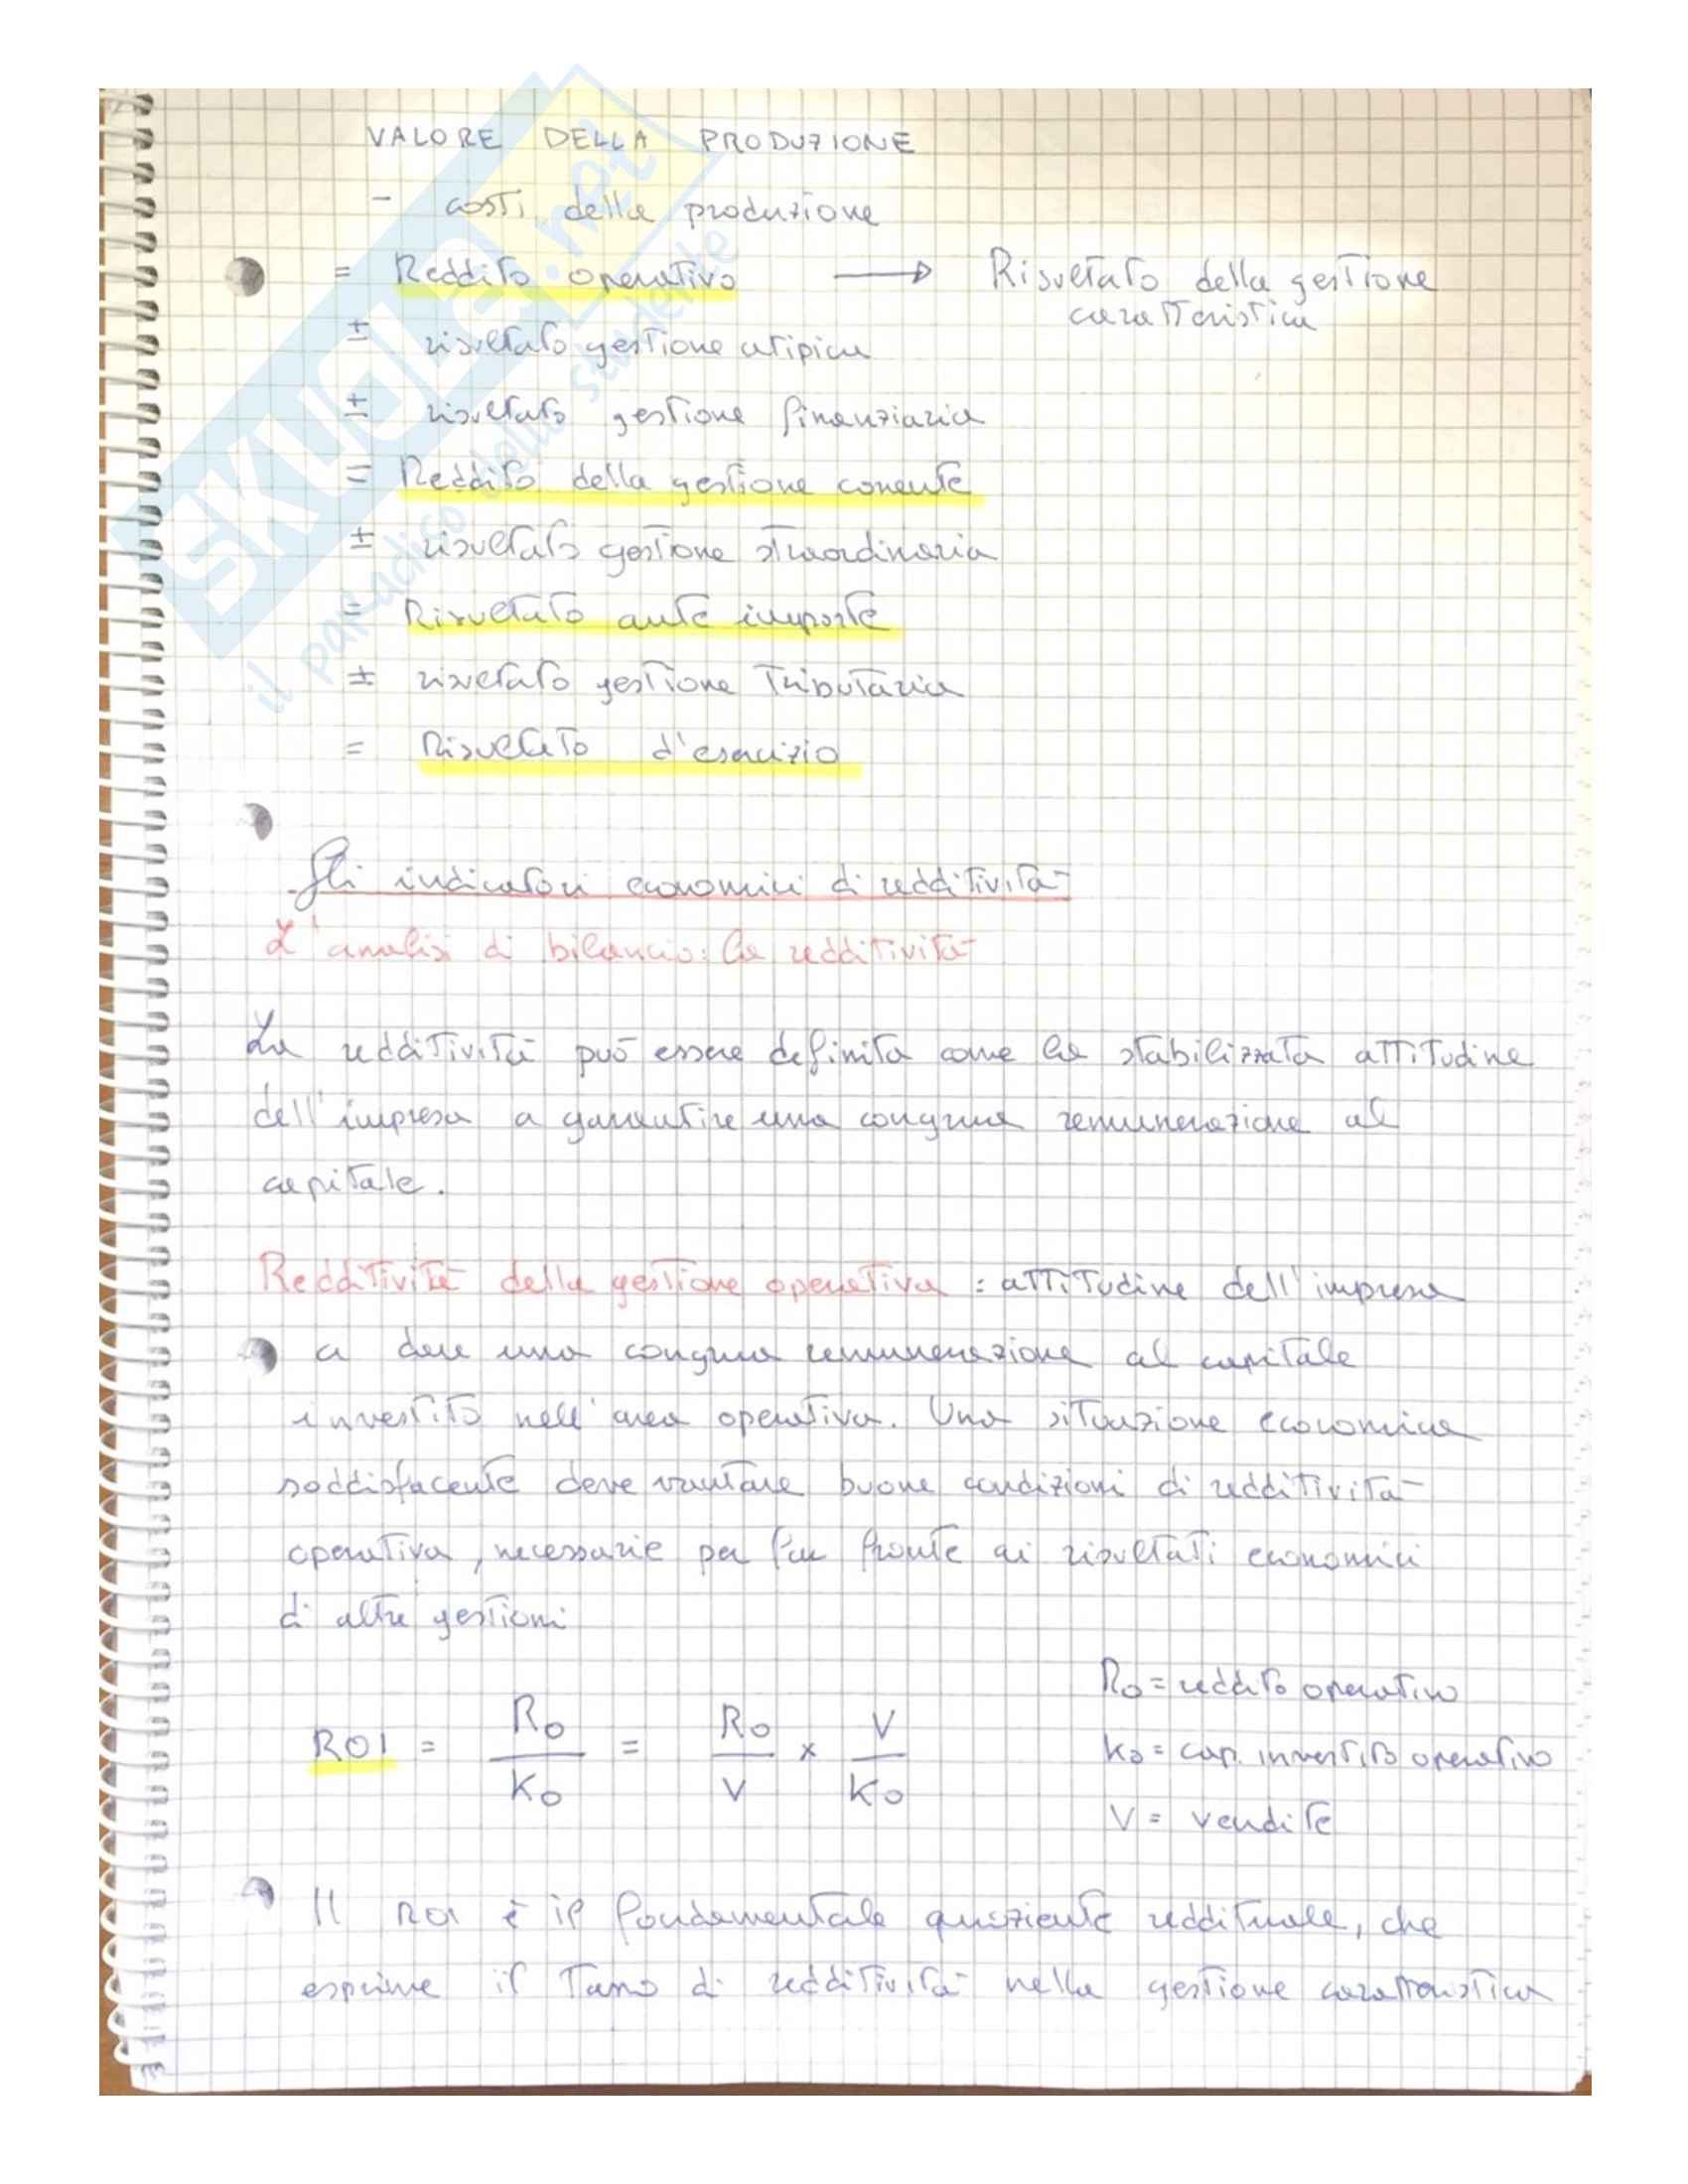 VALORE DELLA PRODUZIONE
- costi della produzione
= Reddito operativo → Risultato della gestione
caratteristica
± risultato gestione atipica
± risultato gestione finanziaria
= Reddito della gestione corrente
± risultato gestione straordinaria
= Risultato ante imposte
± risultato gestione tributaria
= Risultato d'esercizio
Gli indicatori economici di redditività
L'analisi di bilancio: la redditività
La redditività può essere definita come la stabilizzata attitudine
dell'impresa a garantire una congrua remunerazione al
capitale.
Redditività della gestione operativa : attitudine dell'impresa
a dare una congrua remunerazione al capitale
investito nell'area operativa. Una situazione economica
soddisfacente deve vantare buone condizioni di redditività
operativa, necessarie per far fronte ai risultati economici
di altre gestioni
ROI = Ro / Ko = Ro / V x V / Ko
Ro = reddito operativo
Ko = cap. investito operativo
V = vendite
Il ROI è il fondamentale quoziente reddituale, che
esprime il tasso di redditività nella gestione caratteristica
SKUOLA.net
il paradiso dello studente